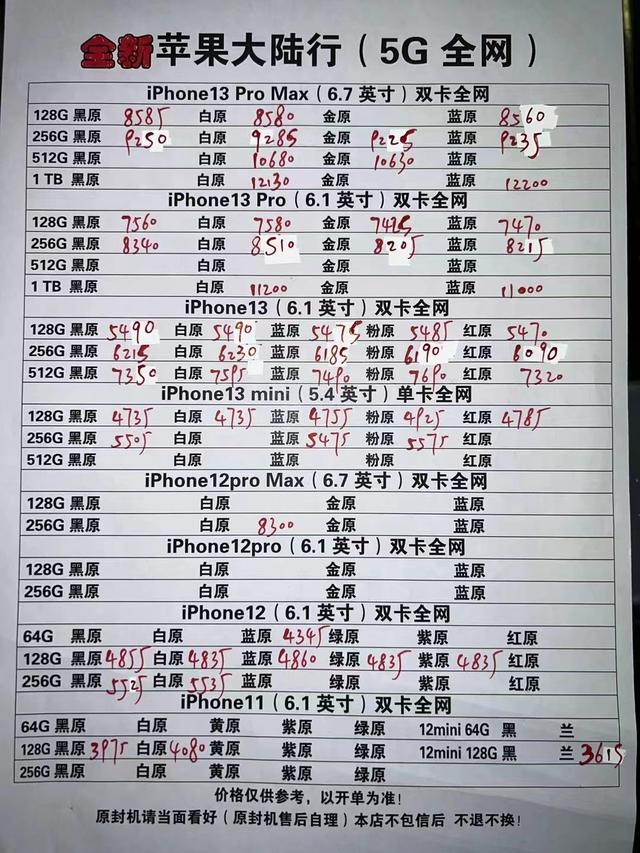 全新苹果大陆行（5G 全网）
iPhone13 Pro Max（6.7 英寸）双卡全网
128G 黑原 8585 白原 8580 金原 蓝原 8560
256G 黑原 9250 白原 9285 金原 9225 蓝原 9235
512G 黑原 白原 10680 金原 10630 蓝原
1 TB 黑原 白原 12130 金原 蓝原 12200
iPhone13 Pro（6.1 英寸）双卡全网
128G 黑原 7560 白原 7580 金原 7425 蓝原 7470
256G 黑原 8340 白原 8510 金原 8205 蓝原 8215
512G 黑原 白原 金原 蓝原
1 TB 黑原 白原 11200 金原 蓝原 11000
iPhone13（6.1 英寸）双卡全网
128G 黑原 5490 白原 5490 蓝原 5475 粉原 5485 红原 5470
256G 黑原 6215 白原 6230 蓝原 6185 粉原 6190 红原 6090
512G 黑原 7350 白原 7595 蓝原 7490 粉原 7690 红原 7320
iPhone13 mini（5.4 英寸）单卡全网
128G 黑原 4735 白原 4735 蓝原 4755 粉原 4925 红原 4785
256G 黑原 5505 白原 蓝原 5475 粉原 5575 红原
512G 黑原 白原 蓝原 粉原 红原
iPhone12pro Max（6.7 英寸）双卡全网
128G 黑原 白原 金原 蓝原
256G 黑原 白原 8300 金原 蓝原
iPhone12pro（6.1 英寸）双卡全网
128G 黑原 白原 金原 蓝原
256G 黑原 白原 金原 蓝原
iPhone12（6.1 英寸）双卡全网
64G 黑原 白原 蓝原 4345 绿原 紫原 红原
128G 黑原 4855 白原 4835 蓝原 4860 绿原 4835 紫原 4835 红原
256G 黑原 5525 白原 5535 蓝原 绿原 紫原 红原
iPhone11（6.1 英寸）双卡全网
64G 黑原 白原 黄原 紫原 绿原 12mini 64G 黑 兰
128G 黑原 3975 白原 4080 黄原 紫原 绿原 12mini 128G 黑 兰 3615
256G 黑原 白原 黄原 紫原 绿原
价格仅供参考，以开单为准！
原封机请当面看好（原封机售后自理）本店不包信后 不退不换！